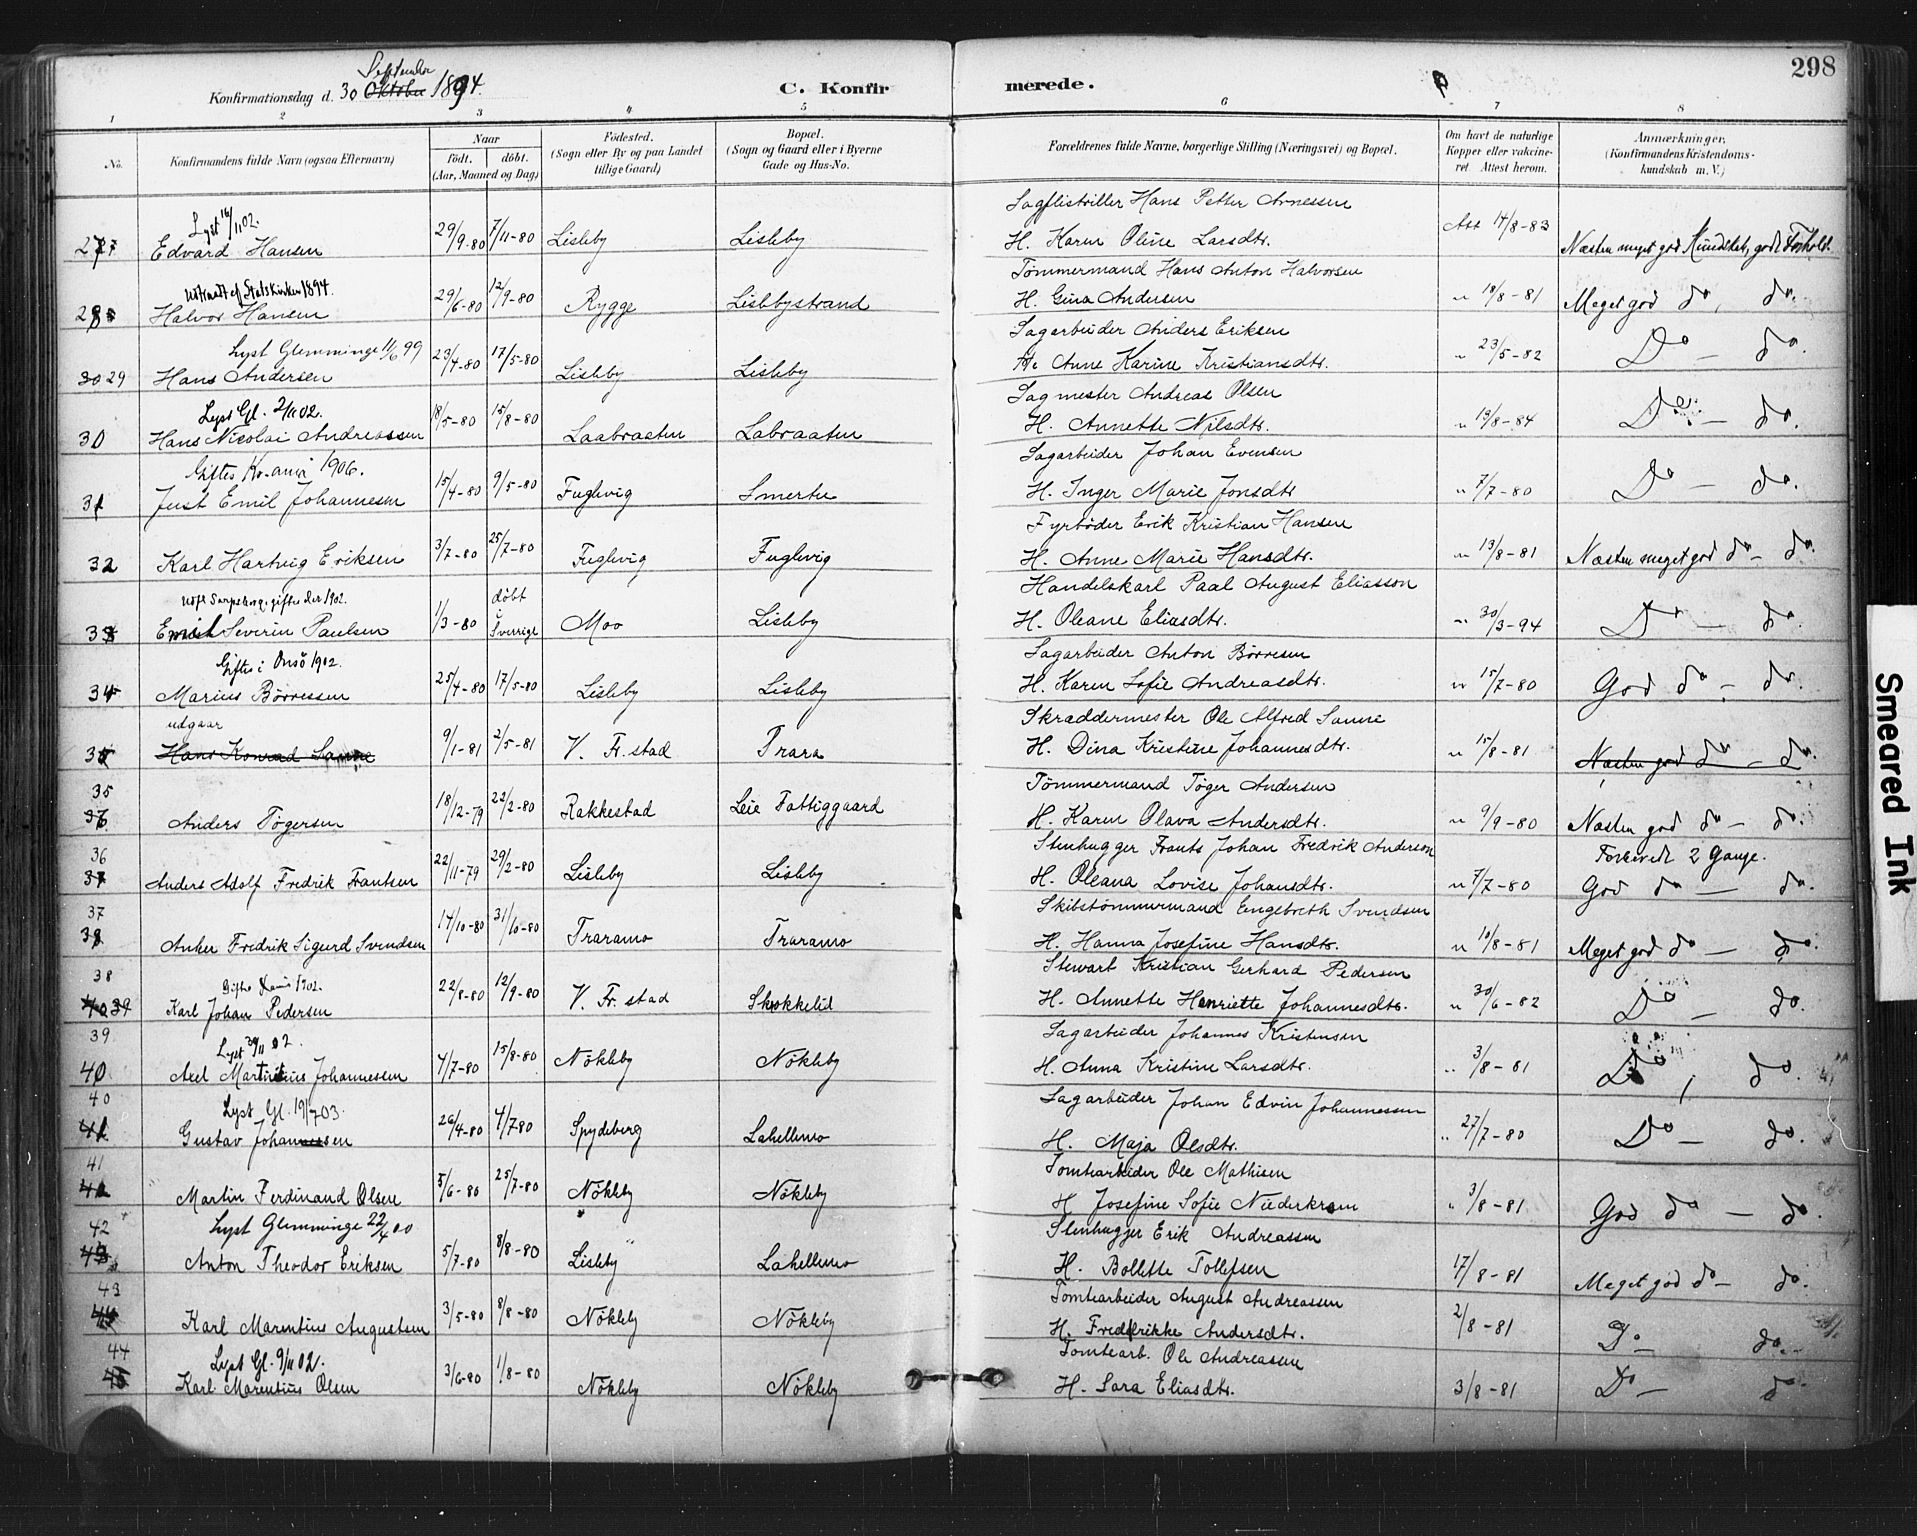 298
September
Konfirmationsdag d. 30 Oktober 1894.
C. Konfirmerede.
1 2 3 4 5 6 7 8
No.
Konfirmandens fulde Navn (ogsaa Efternavn)
Naar født. døbt. (Aar, Maaned og Dag)
Fødested. (Sogn eller By og paa Landet tillige Gaard)
Bopæl. (Sogn og Gaard eller i Byerne Gade og Hus-No.
Forældrenes fulde Navne, borgerlige Stilling (Næringsvei) og Bopæl.
Om havt de naturlige Kopper eller vakcineret Attest herom.
Anmærkninger, (Konfirmandens Kristendomskundskab m. V.)
Lyst 16/11 02. Sagflistriller Hans Petter Arnessen
27 Edvard Hansen 29/9-80 7/11-80 Lisleby Lisleby H. Karen Oline Larsdtr. Att 14/8-83 Næsten meget god Kundskab, godt Forhold.
Udtraadt af Statskirken 1894. Tømmermand Hans Anton Halvorsen
28 Halvor Hansen 29/6-80 12/9-80 Rygge Lislebystrand H. Gina Andersen " 18/8-81 Meget god do, do.
Lyst Glemminge 11/6 99 Sagarbeider Anders Eriksen
30 29 Hans Andersen 23/4-80 17/5-80 Lisleby Lisleby H. Anne Karine Kristiansdtr. " 23/5-82 Do - do.
Lyst Gl. 2/11 02. Sagmester Andreas Olsen
30 Hans Nicolai Andreassen 18/5-80 15/8-80 Laabraaten Labraaten H. Annette Nilsdtr. " 13/8-84 Do - do.
Giftes Kr.ania 1906. Sagarbeider Johan Evensen
31 Just Emil Johannesen 15/4-80 9/5-80 Fuglevig Smertu H. Inger Marie Jonsdtr " 7/7-80 Do - do.
Fyrbøder Erik Kristian Hansen
32 Karl Hartvig Eriksen 3/7-80 25/7-80 Fuglevig Fuglevig H. Anne Marie Hansdtr. " 13/8-81 Næsten meget god do - do.
Udfl Sarpsborg, giftes der 1902. Handelskarl Paal August Eliasson
33 Emil Severin Paulsen 1/3-80 døbt i Sverrige Moo Lisleby H. Oleane Eliasdtr. " 30/3-94 Do - do.
Giftes i Onsö 1902. Sagarbeider Anton Børresen
34 Marius Børresen 25/4-80 17/5-80 Lisleby Lisleby H. Karen Sofie Andreasdtr. " 15/7-80 God do - do.
udgaar Skræddermester Ole Alfred Sanne
35 Hans Konrad Sanne 9/1-81 2/5-81 V. Fr.stad Trara H. Dina Kristine Johannesdtr. " 15/8-81 Næsten god do - do.
35 Tømmermand Tøger Andersen
36 Anders Tøgersen 18/12-79 22/2-80 Rakkestad Leie Fattiggaard H. Karen Olava Andersdtr. " 9/9-80 Næsten god do - do.
36 Stenhugger Frants Johan Fredrik Anderson Forhørt 2 Gange.
37 Anders Adolf Fredrik Frantsen 22/11-79 29/2-80 Lisleby Lisleby H. Oleana Lovise Johansdtr. " 7/7-80 God do - do.
37 Skibstømmermand Engebreth Svendsen
38 Anker Fredrik Sigurd Svendsen 14/10-80 31/10-80 Traramo Traramo H. Hanna Josefine Hansdtr. " 10/8-81 Meget god do - do.
38 Stewart Kristian Gerhard Pedersen
40 39 Karl Johan Pedersen 22/8-80 12/9-80 V. Fr.stad Skokkelid H. Annette Henriette Johannesdtr. " 30/6-82 Do - do.
39 Lyst 30/11 02. Sagarbeider Johannes Kristensen
40 Axel Martinius Johannessen 4/7-80 15/8-80 Nökleby Nökleby H. Anna Kristine Larsdtr. " 3/8-81 Do, do.
40 Lyst Gl. 19/7 03. Sagarbeider Johan Edvin Johannessen
41 Gustav Johannessen 26/4-80 4/7 80 Spydeberg Lahellemo H. Maja Olsdtr. " 27/7-80 Do - do.
41 Tomtearbeider Ole Mathisen
42 Martin Ferdinand Olsen 5/6-80 25/7-80 Nökleby Nökleby H. Josefine Sofie Niederkrom " 3/8-81 God do - do.
42 Lyst Glemminge 22/4 00 Stenhugger Erik Andreassen
43 Anton Theodor Eriksen 5/7-80 8/8-80 Lisleby Lahellemo H. Bollette Tollefsen 17/8-81 Meget god do - do.
43 Tomtearbeider August Andreassen
44 Karl Marentius Augustsen 3/5-80 8/8-80 Nökleby Nökleby H. Fredrikke Andersdtr. 2/8-81 Do - do.
44 Lyst Gl. 9/11 02. Tomtearb. Ole Andreasen
45 Karl Marentius Olsen 3/6-80 1/8-80 Nökleby Nökleby H. Sara Eliasdtr. 3/8-81 Do - do.
Smeared Ink